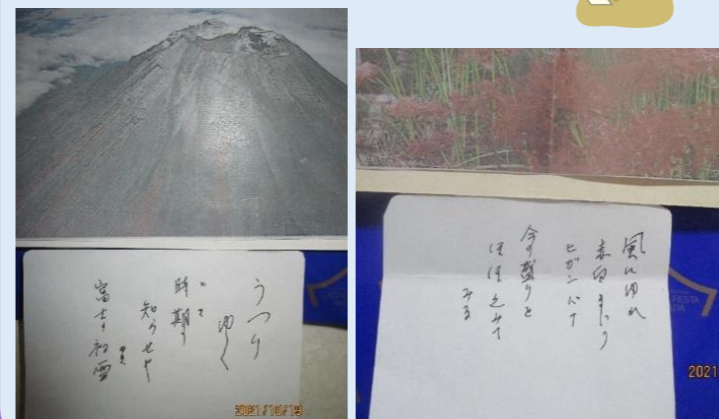 うつり
ゆく
時期の
知らせや
富士の初雪
2021/10/19
風にゆれ
赤白まじり
ヒガンバナ
今が盛りと
ほほえみて
みる
FESTA
2021